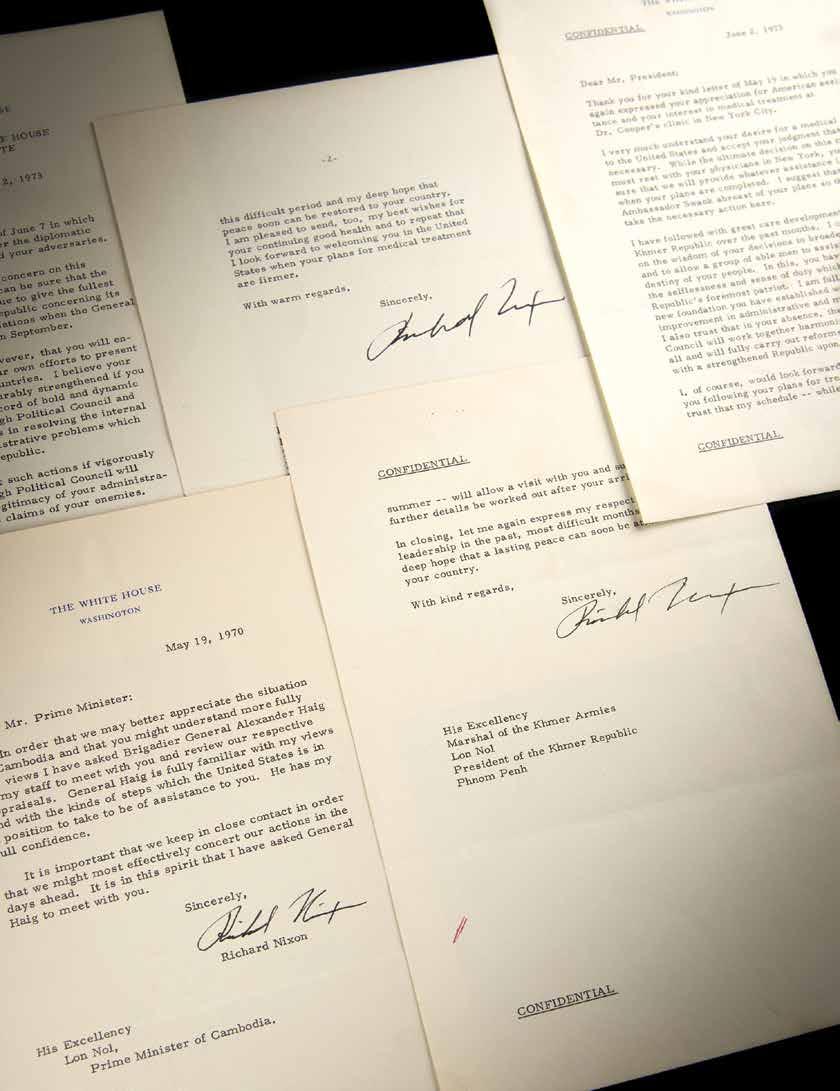 HOUSE
2, 1973
of June 7 in which
the diplomatic
your adversaries.
concern on this
can be sure that the
to give the fullest
concerning its
when the General
September.
that you will en-
own efforts to present
I believe your
strengthened if you
of bold and dynamic
Political Council and
in resolving the internal
problems which
such actions if vigorously
Political Council will
of your administra-
claims of your enemies.
-2-
this difficult period and my deep hope that
peace soon can be restored to your country.
I am pleased to send, too, my best wishes for
your continuing good health and to repeat that
I look forward to welcoming you in the United
States when your plans for medical treatment
are firmer.
With warm regards,
Sincerely,
THE WHITE HOUSE
WASHINGTON
CONFIDENTIAL
June 2, 1973
Dear Mr. President:
Thank you for your kind letter of May 19 in which you
again expressed your appreciation for American
tance and your interest in medical treatment at
Dr. Cooper's clinic in New York City.
I very much understand your desire for a medical
to the United States and accept your judgment that
necessary. While the ultimate decision on this
must rest with your physicians in New York,
sure that we will provide whatever assistance
when your plans are completed. I suggest
Ambassador Swank abreast of your plans so
take the necessary action here.
I have followed with great care
Khmer Republic over the past months. I
on the wisdom of your decisions to
and to allow a group of able men to
destiny of your people. In this, you
the selflessness and sense of duty
Republic's foremost patriot. I am
new foundation you have established
improvement in administration and
I also trust that in your absence,
Council will work together
all and will fully carry out
with a strengthened Republic upon
I, of course, would look forward
you following your plans for
trust that my schedule -- while
CONFIDENTIAL
CONFIDENTIAL
summer -- will allow a visit with you and
further details be worked out after your
In closing, let me again express my
leadership in the past, most difficult
deep hope that a lasting peace can soon be
your country.
With kind regards,
Sincerely,
His Excellency
Marshal of the Khmer Armies
Lon Nol
President of the Khmer Republic
Phnom Penh
CONFIDENTIAL
THE WHITE HOUSE
WASHINGTON
May 19, 1970
Mr. Prime Minister:
In order that we may better appreciate the situation
Cambodia and that you might understand more fully
views I have asked Brigadier General Alexander Haig
my staff to meet with you and review our respective
General Haig is fully familiar with my views
with the kinds of steps which the United States is in
position to take to be of assistance to you. He has my
confidence.
It is important that we keep in close contact in order
that we might most effectively concert our actions in the
days ahead. It is in this spirit that I have asked General
Haig to meet with you.
Sincerely,
Richard Nixon
Richard Nixon
His Excellency
Lon Nol,
Prime Minister of Cambodia.